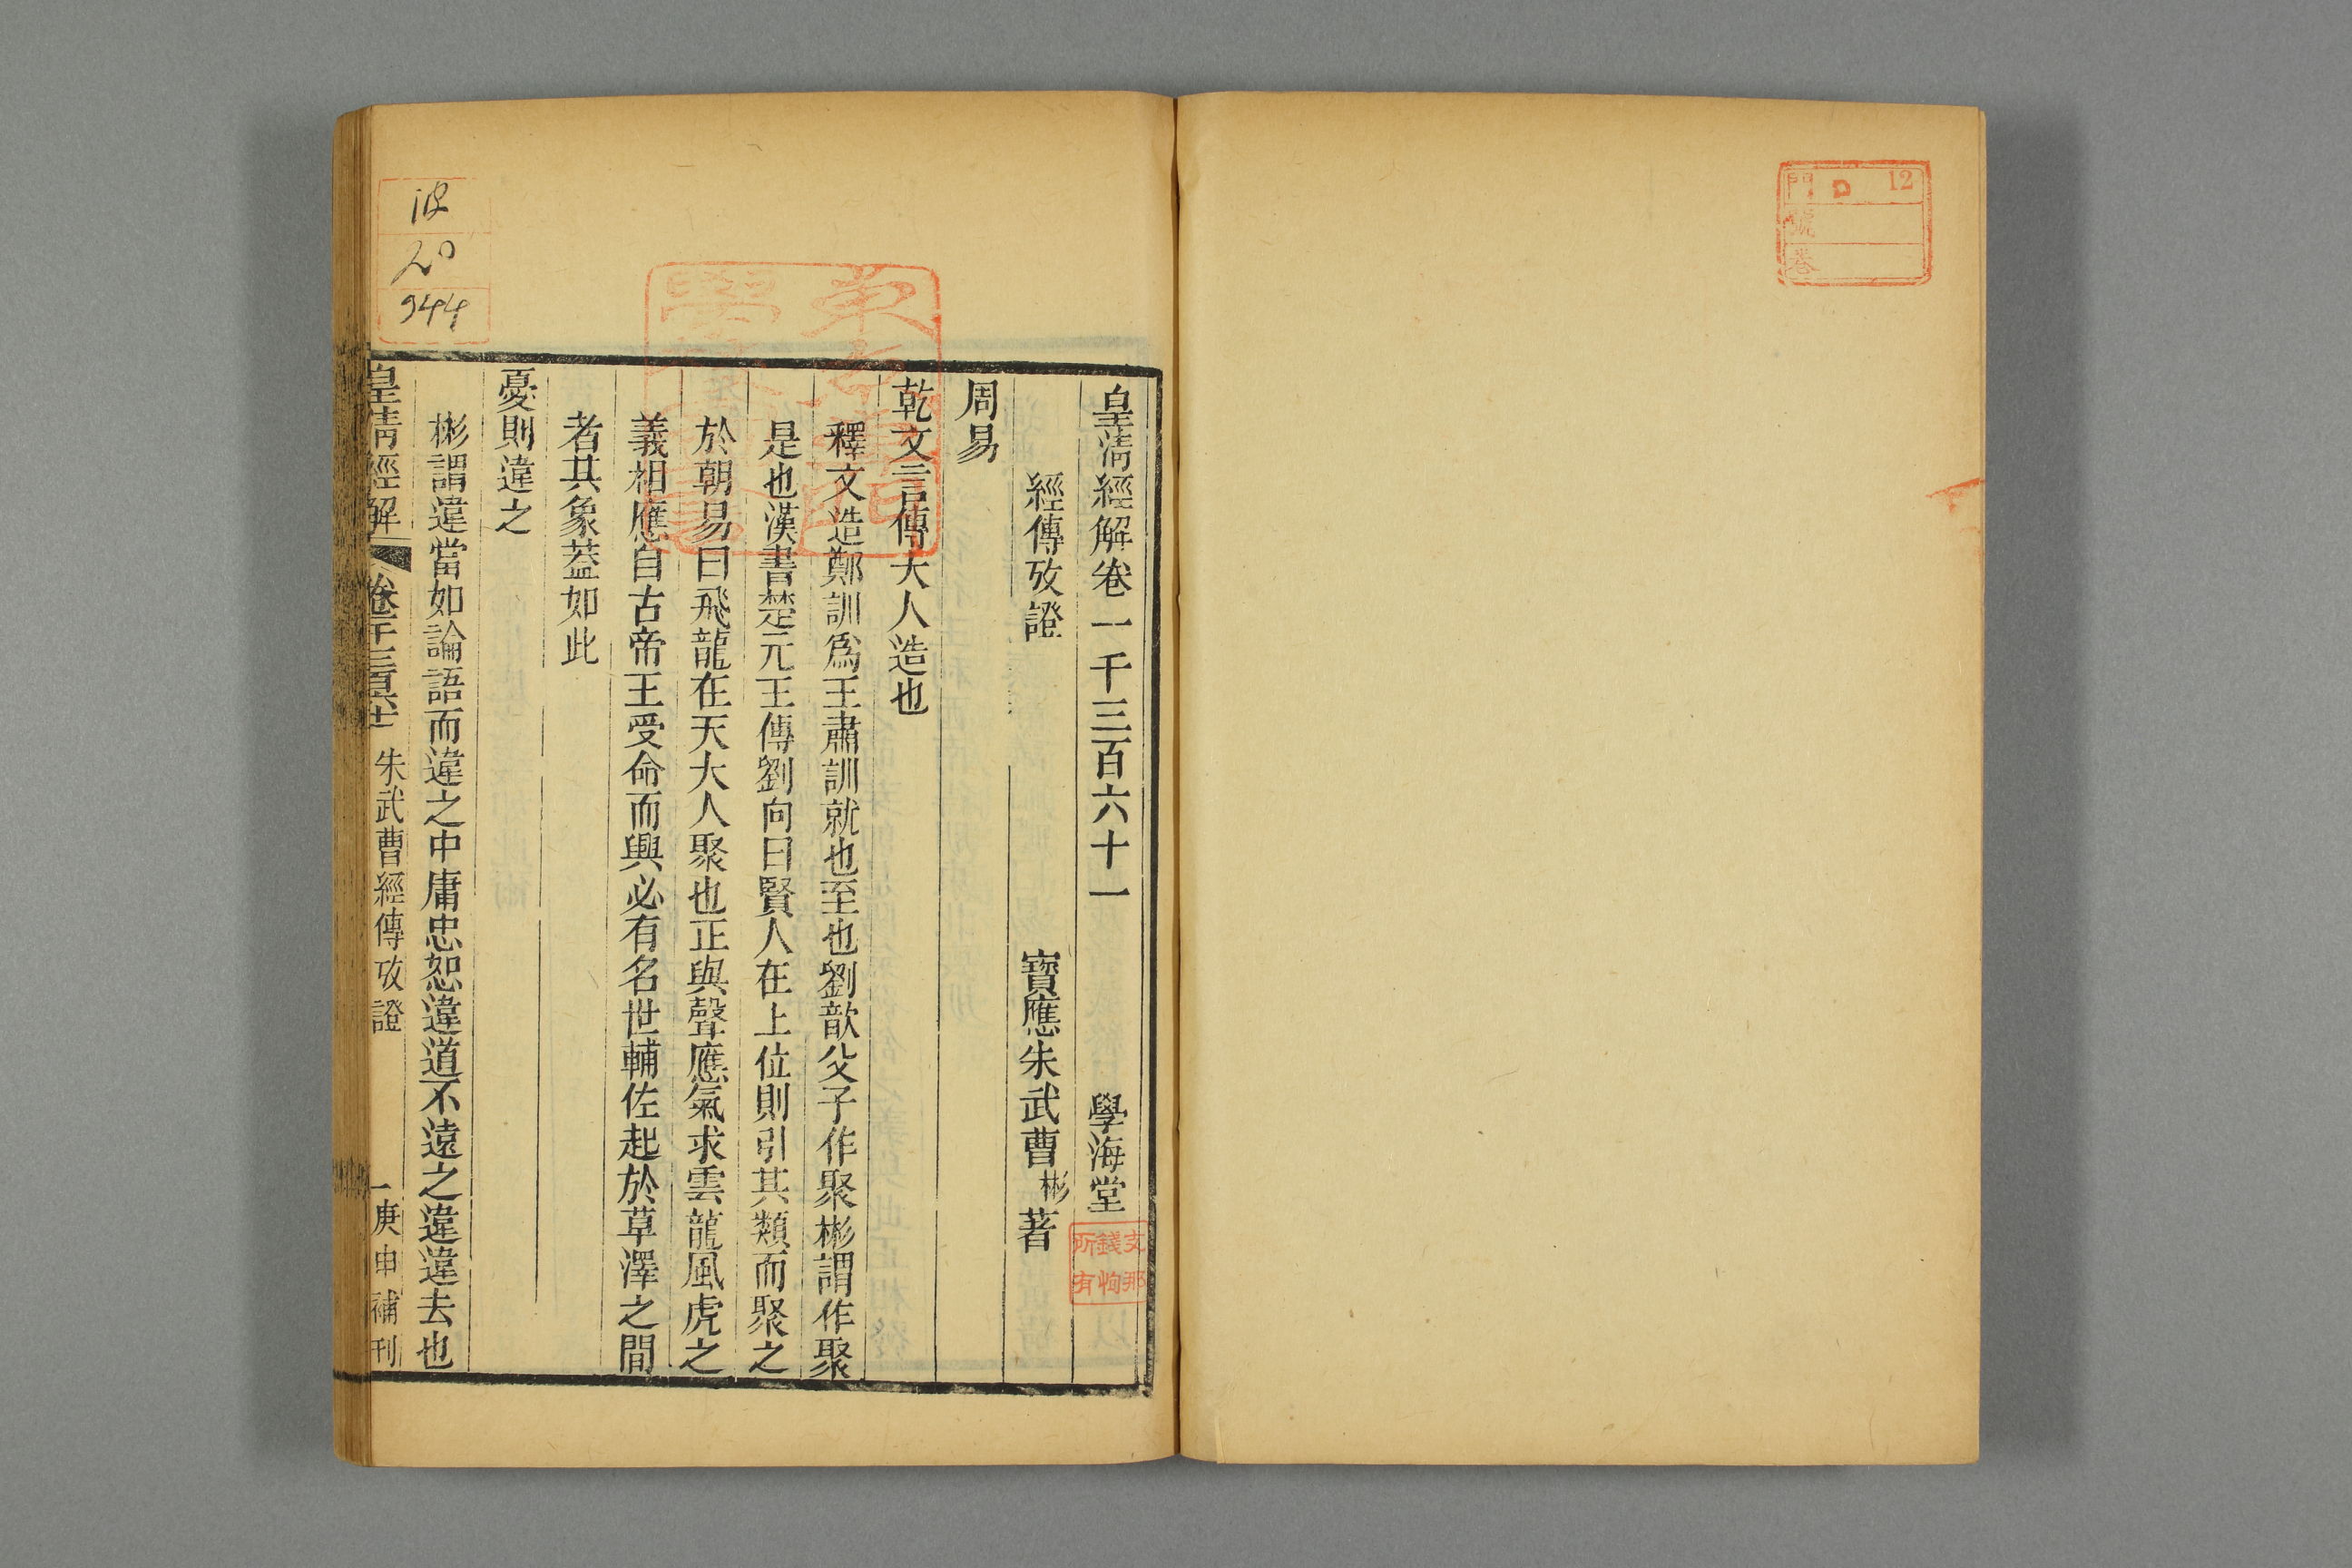 門 12
號
卷
皇清經解卷一千三百六十一 學海堂
經傳攷證 寶應朱武曹彬著
周易
乾文言傳大人造也
釋文造鄭訓爲王肅訓就也至也劉歆父子作聚彬謂作聚
是也漢書楚元王傳劉向曰賢人在上位則引其類而聚之
於朝易曰飛龍在天大人聚也正與聲應氣求雲龍風虎之
義相應自古帝王受命而興必有名世輔佐起於草澤之間
者其象葢如此
憂則違之
彬謂違當如論語而違之中庸忠恕違道不遠之違違去也
皇清經解 卷千三百六十一 朱武曹經傳攷證 一 庚申補刊
支那
錢恂
所有
20
944